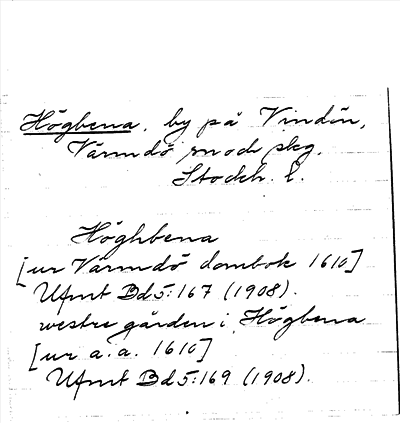 Högbena, by på Vindön,
Värmdö sn och skg.
Stockh. l.
Höghbena
[ur Värmdö dombok 1610]
Ufmt Bd 5:167 (1908).
westre gården i Högbena
[ur a.a. 1610]
Ufmt Bd 5:169 (1908).